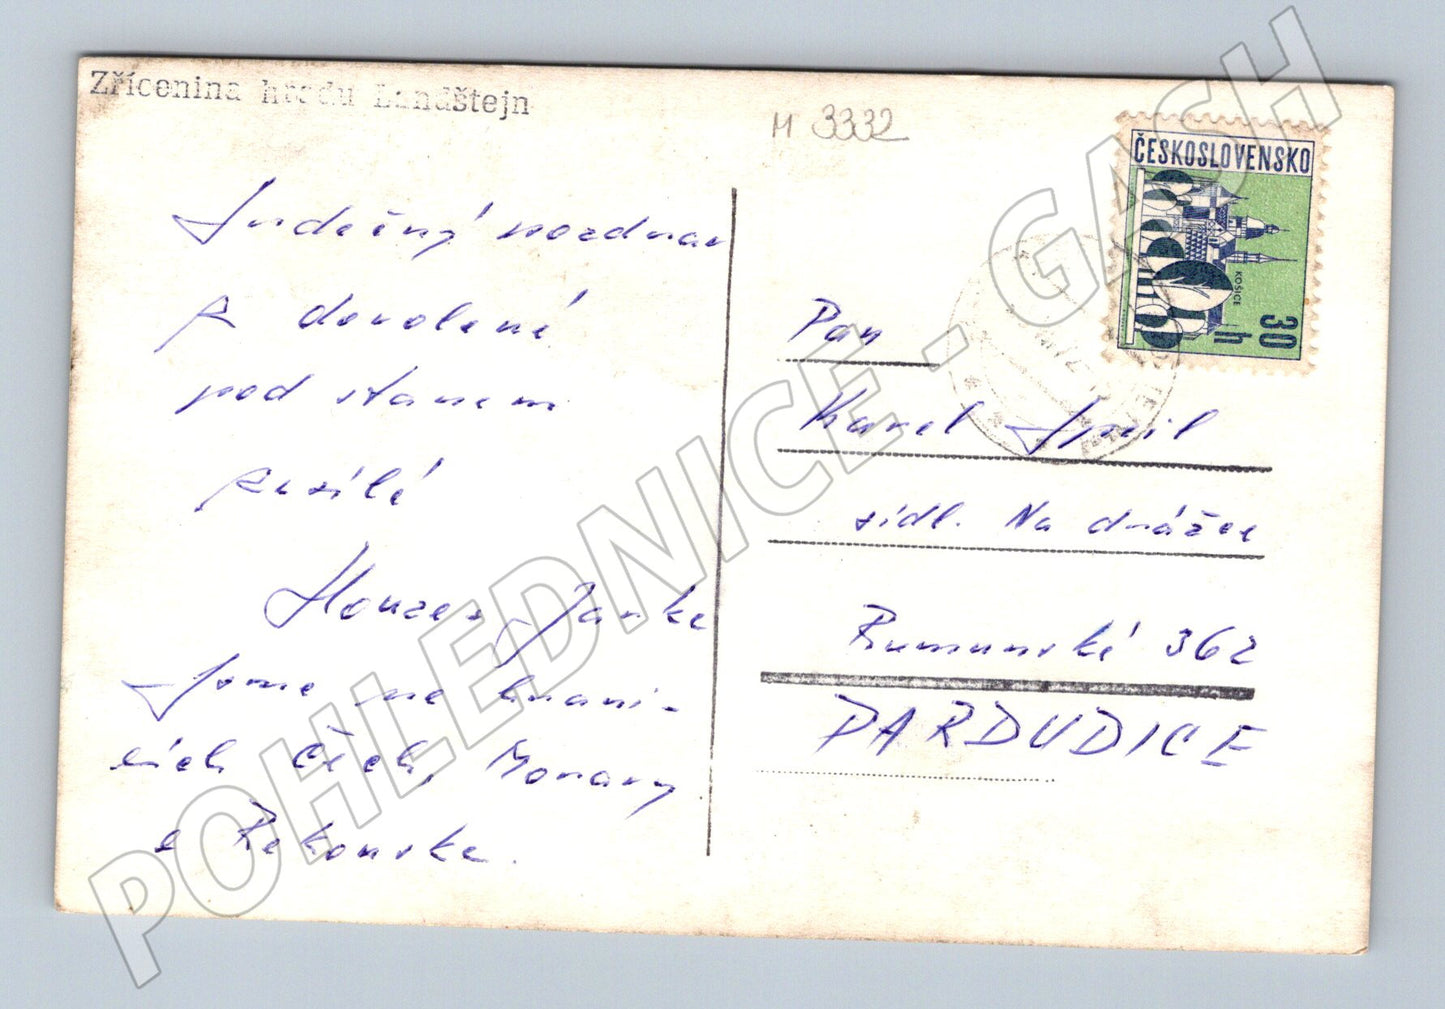 Zřícenina hradu Landštejn
M 3332
ČESKOSLOVENSKO
KOŠICE
30 h
Srdečný pozdrav
z dovolené
pod stanem
zasílá
Honza a Jarka
Jsme na hrani-
cích Čech, Moravy
a Rakouska.
Pan
Karel
sídl. Na drážce
Rumunská 362
PARDUBICE
POHLEDNICE - GASH